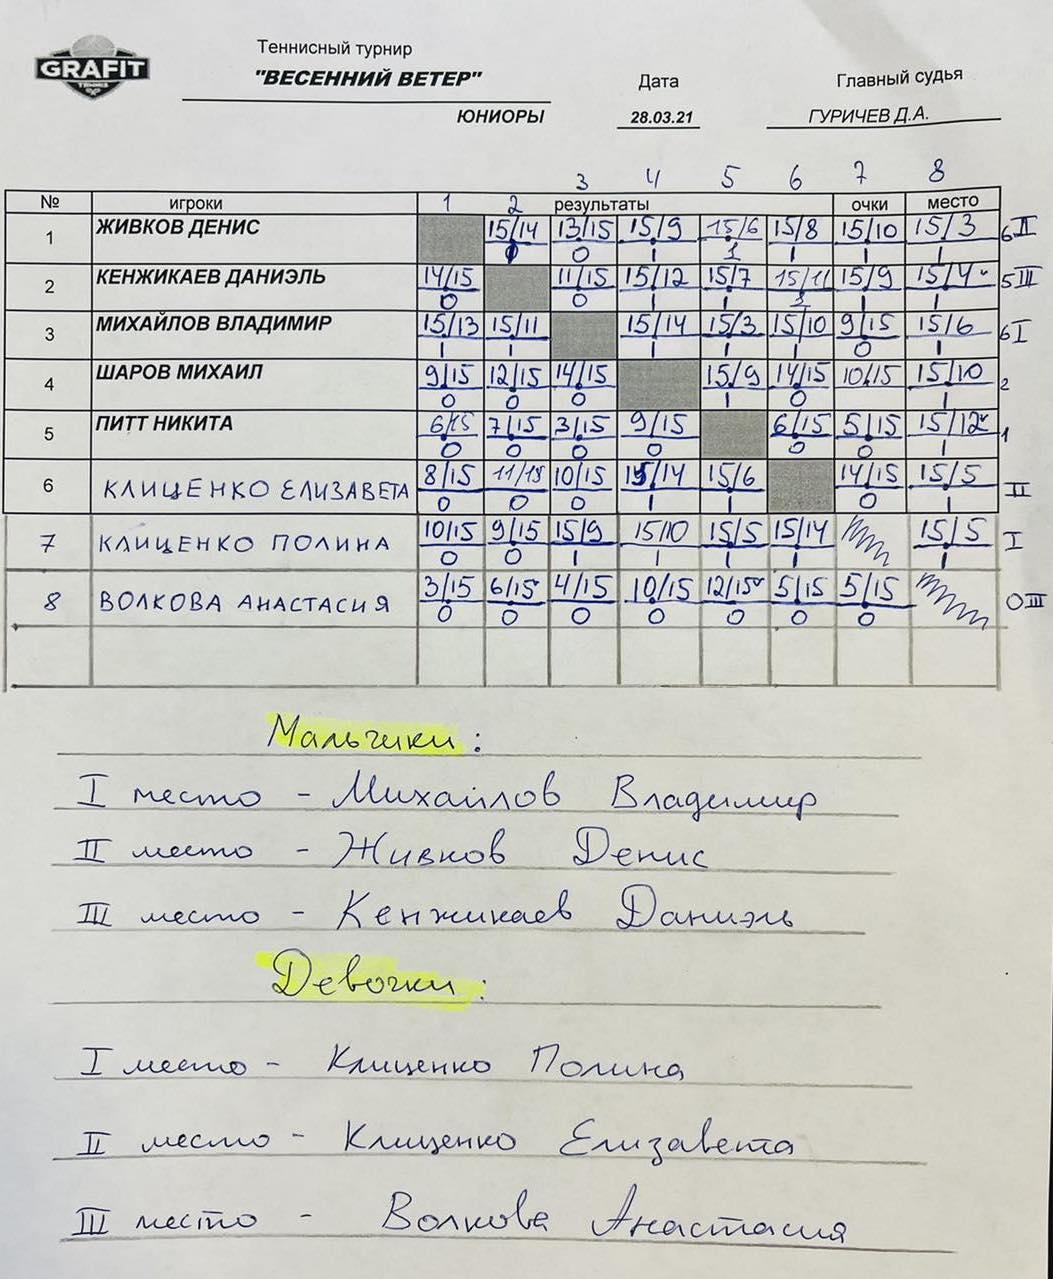 GRAFIT
TENNIS
Теннисный турнир
"ВЕСЕННИЙ ВЕТЕР"
ЮНИОРЫ
Дата
28.03.21
Главный судья
ГУРИЧЕВ Д.А.
3 4 5 6 7 8
№ игроки 1 2 результаты очки место
1 ЖИВКОВ ДЕНИС 15/14 13/15 15/9 15/6 15/8 15/10 15/3 6 II
0 1 1 1 1 1
2 КЕНЖИКАЕВ ДАНИЭЛЬ 14/15 11/15 15/12 15/7 15/11 15/9 15/4 5 III
0 0 1 1 1 1 1
3 МИХАЙЛОВ ВЛАДИМИР 15/13 15/11 15/14 15/3 15/10 9/15 15/6 6 I
1 1 1 1 1 0 1
4 ШАРОВ МИХАИЛ 9/15 12/15 14/15 15/9 14/15 10/15 15/10 2
0 0 0 1 0 1
5 ПИТТ НИКИТА 6/15 7/15 3/15 9/15 6/15 5/15 15/12 1
0 0 0 0 0 0 1
6 КЛИЦЕНКО ЕЛИЗАВЕТА 8/15 11/15 10/15 15/14 15/6 14/15 15/5 II
0 0 0 1 1 0 1
7 КЛИЦЕНКО ПОЛИНА 10/15 9/15 15/9 15/10 15/5 15/14 15/5 I
0 0 1 1 1 1 1
8 ВОЛКОВА АНАСТАСИЯ 3/15 6/15 4/15 10/15 12/15 5/15 5/15 0 III
0 0 0 0 0 0 0
Мальчики:
I место - Михайлов Владимир
II место - Живков Денис
III место - Кенжикаев Даниэль
Девочки:
I место - Клиценко Полина
II место - Клиценко Елизавета
III место - Волкова Анастасия